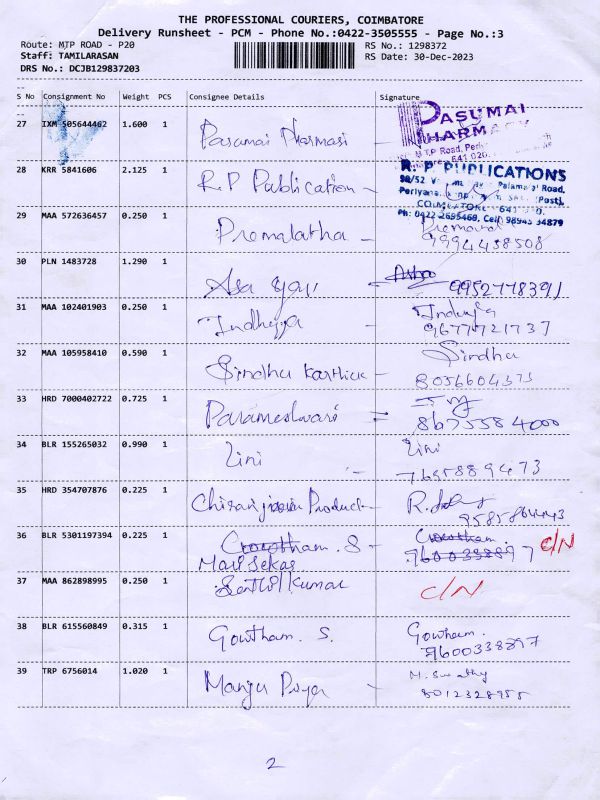 THE PROFESSIONAL COURIERS, COIMBATORE
Delivery Runsheet - PCM - Phone No.:0422-3505555 - Page No.:3
Route: MTP ROAD - P20 RS No.: 1298372
Staff: TAMILARASAN RS Date: 30-Dec-2023
DRS No.: DCJB129837203
S No Consignment No Weight PCS Consignee Details Signature
27 IXM 505644462 1.600 1 Pasumai Pharmasi - PASUMAI
PHARMACY
MTP Road,
641 020.
28 KRR 5841606 2.125 1 R.P Publication - R. P. PUBLICATIONS
98/52 Road,
(Post),
COIMBATORE - 641
Ph: 0422 2695469, Cell: 98943 34879
29 MAA 572636457 0.250 1 Premalatha -
9994438508
30 PLN 1483728 1.290 1 - 9952778391
31 MAA 102401903 0.250 1 Indhuja - Induja
9677721737
32 MAA 105958410 0.590 1 Sindhu Karthick - Sindhu
8056604373
33 HRD 7000402722 0.725 1 Parameshwari =
8675584000
34 BLR 155265032 0.990 1 Lini - Lini
7695889473
35 HRD 354707876 0.225 1 Product -
36 BLR 5301197394 0.225 1 Gowtham. S - Gowtham.
9600338897 C/N
Mari Sekar
37 MAA 862898995 0.250 1 Senthil Kumar C/N
38 BLR 615560849 0.315 1 Gowtham. S. Gowtham.
9600338897
39 TRP 6756014 1.020 1 Manju Priya - M. Swathy
8012328955
2